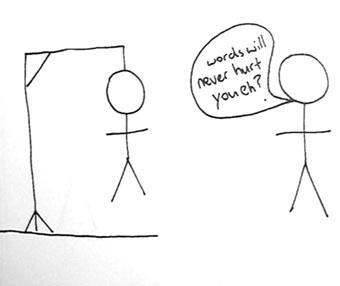 words will
never hurt
you eh?